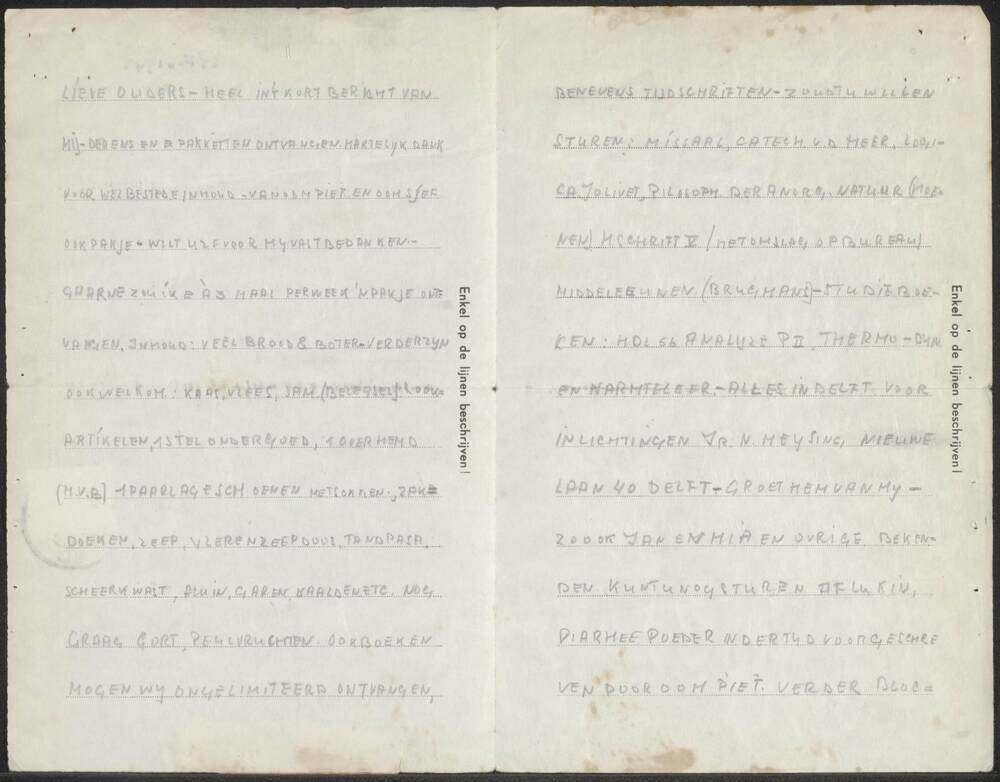 LIEVE OUDERS - HEEL IN'T KORT BERICHT VAN
MIJ - DEKENS EN 2 PAKKETTEN ONTVANGEN. HARTELYK DANK
VOOR WELBESTEDE INHOUD - VAN OOM PIET EN OOM SJEF
OOK PAKJE - WILT U ZE VOOR MY VAST BEDANKEN. -
GAARNE ZOU IK 2 À 3 MAAL PER WEEK 'N PAKJE ONT-
VANGEN, INHOUD: VEEL BROOD & BOTER - VERDER ZYN
OOK WELKOM: KAAS, VLEES, JAM (BELEGSEL). ROOK-
ARTIKELEN, 1 STEL ONDERGOED, 1 OVERHEMD
(M.V.B) 1 PAAR LAGE SCHOENEN MET SOKKEN, ZAK=
DOEKEN, ZEEP, ZEEPDOOS, TANDPASTA,
SCHEERKWAST, ALUIN, GAREN NAALDEN ETC. NOG
GRAAG GORT, PEULVRUCHTEN. OOK BOEKEN
MOGEN WY ONGELIMITEERD ONTVANGEN,
Enkel op de lijnen beschrijven!
BENEVENS TIJDSCHRIFTEN - ZOUDT U WILLEN
STUREN: MISSAAL, CATECH. V.D. MEER, LOGI-
CA JOLIVET, PILOSOPH. DER ANORG. NATUUR (HOE-
NEN) SCHRIFT V (MET OMSLAG OP BUREAU)
MIDDELEEUWEN (BRUGMANS) - STUDIEBOE-
KEN: ANALYZE P II, THERMO-DYN
EN WARMTELEER - ALLES IN DELFT VOOR
INLICHTINGEN IR. N. HEYSING, NIEUWE
LAAN 40 DELFT - GROET HEM VAN MY -
ZO OOK JAN EN MIA EN OVRIGE BEKEN-
DEN. KUNT U NOG STUREN
DIARHEE POEDER INDERTYD VOORGESCHRE
VEN DOOR OOM PIET. VERDER BLOC=
Enkel op de lijnen beschrijven!